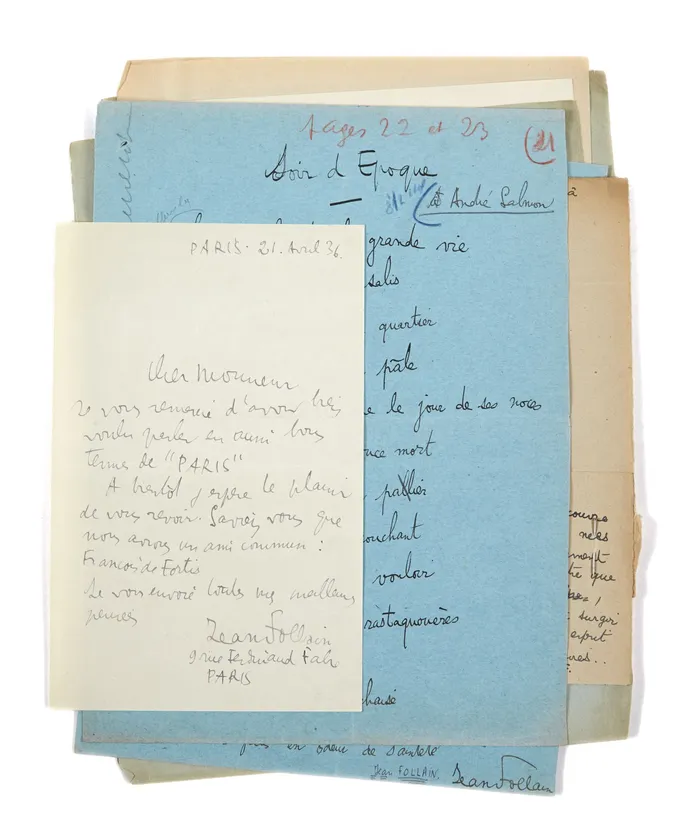 pages 22 et 23
21
Soir d'Epoque
à André Salmon
grande vie
salis
quartier
pâle
le jour de ses noces
mort
pallier
couchant
vouloir
rastaquouères
en odeur de sainteté
Jean FOLLAIN
Jean Follain
PARIS. 21. Avril 36.
Cher Monsieur
Je vous remercie d'avoir bien
voulu parler en aussi bons
termes de "PARIS"
A bientôt j'espère le plaisir
de vous revoir. Savez vous que
nous avons un ami commun :
François de Fortis
Je vous envoie toutes mes meilleures
pensées
Jean Follain
9 rue Ferdinand Fabre
PARIS
à
nées
que
surgir
esprit